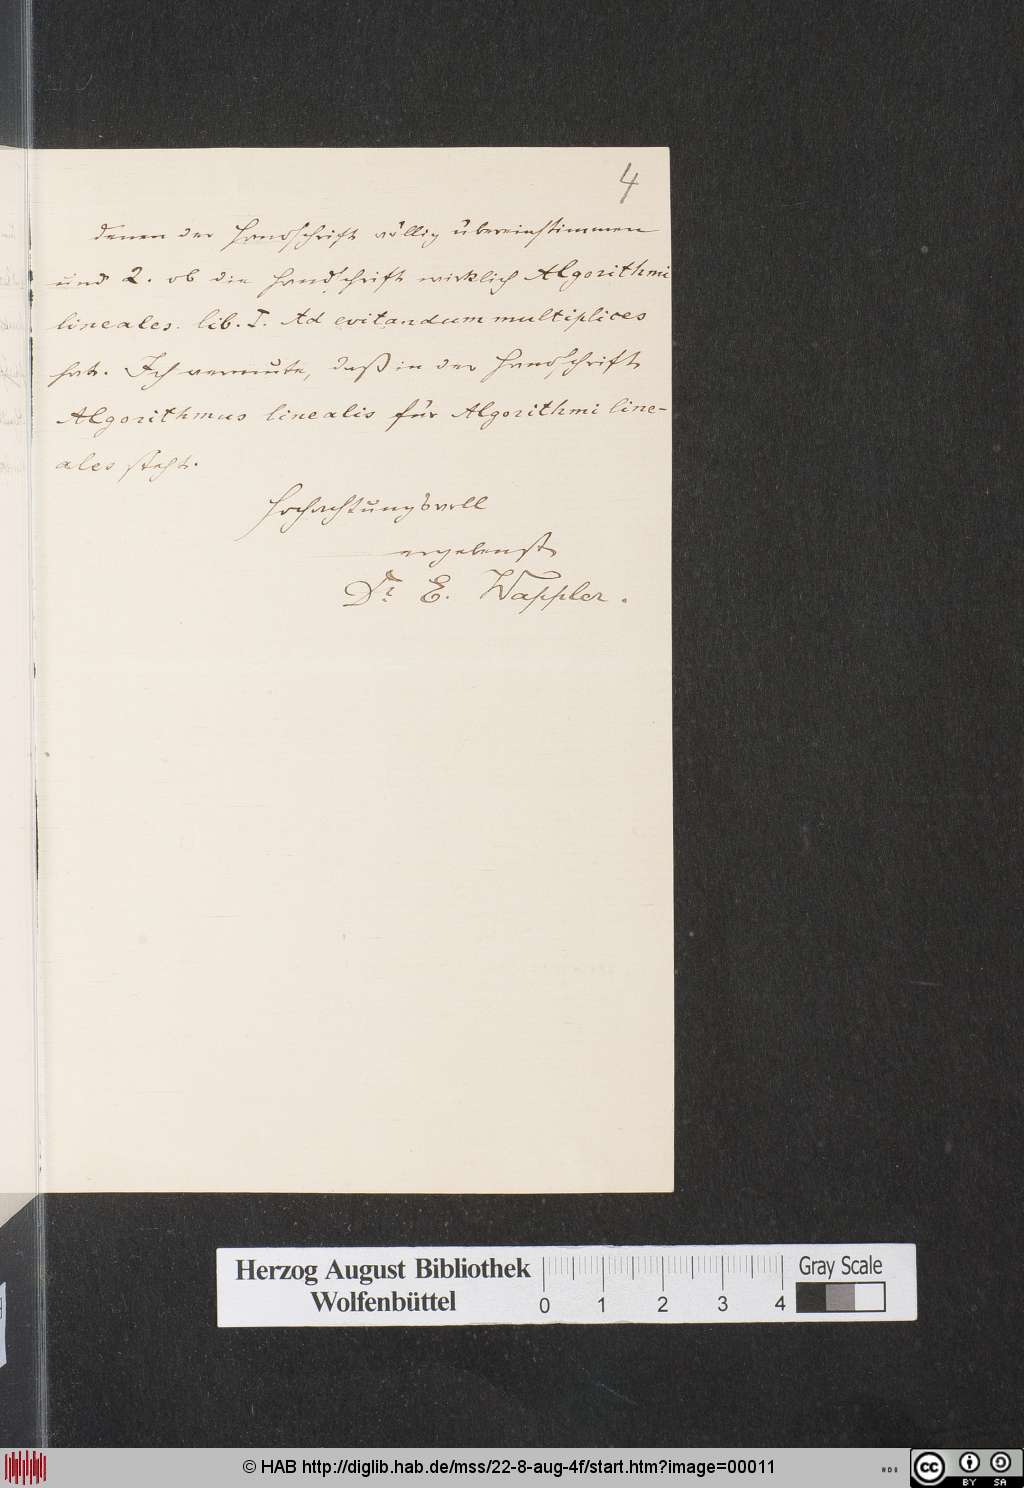 4
denen der Handschrift völlig übereinstimmen
und 2. ob die Handschrift wirklich Algorithmi
lineales. lib. I. Ad evitandum multiplices
hat. Ich vermute, daß in der Handschrift
Algorithmus linealis für Algorithmi line-
ales steht.
Hochachtungsvoll
ergebenst
Dr. E. Wappler.
Herzog August Bibliothek
Wolfenbüttel
0 1 2 3 4
Gray Scale
© HAB http://diglib.hab.de/mss/22-8-aug-4f/start.htm?image=00011
cc BY SA